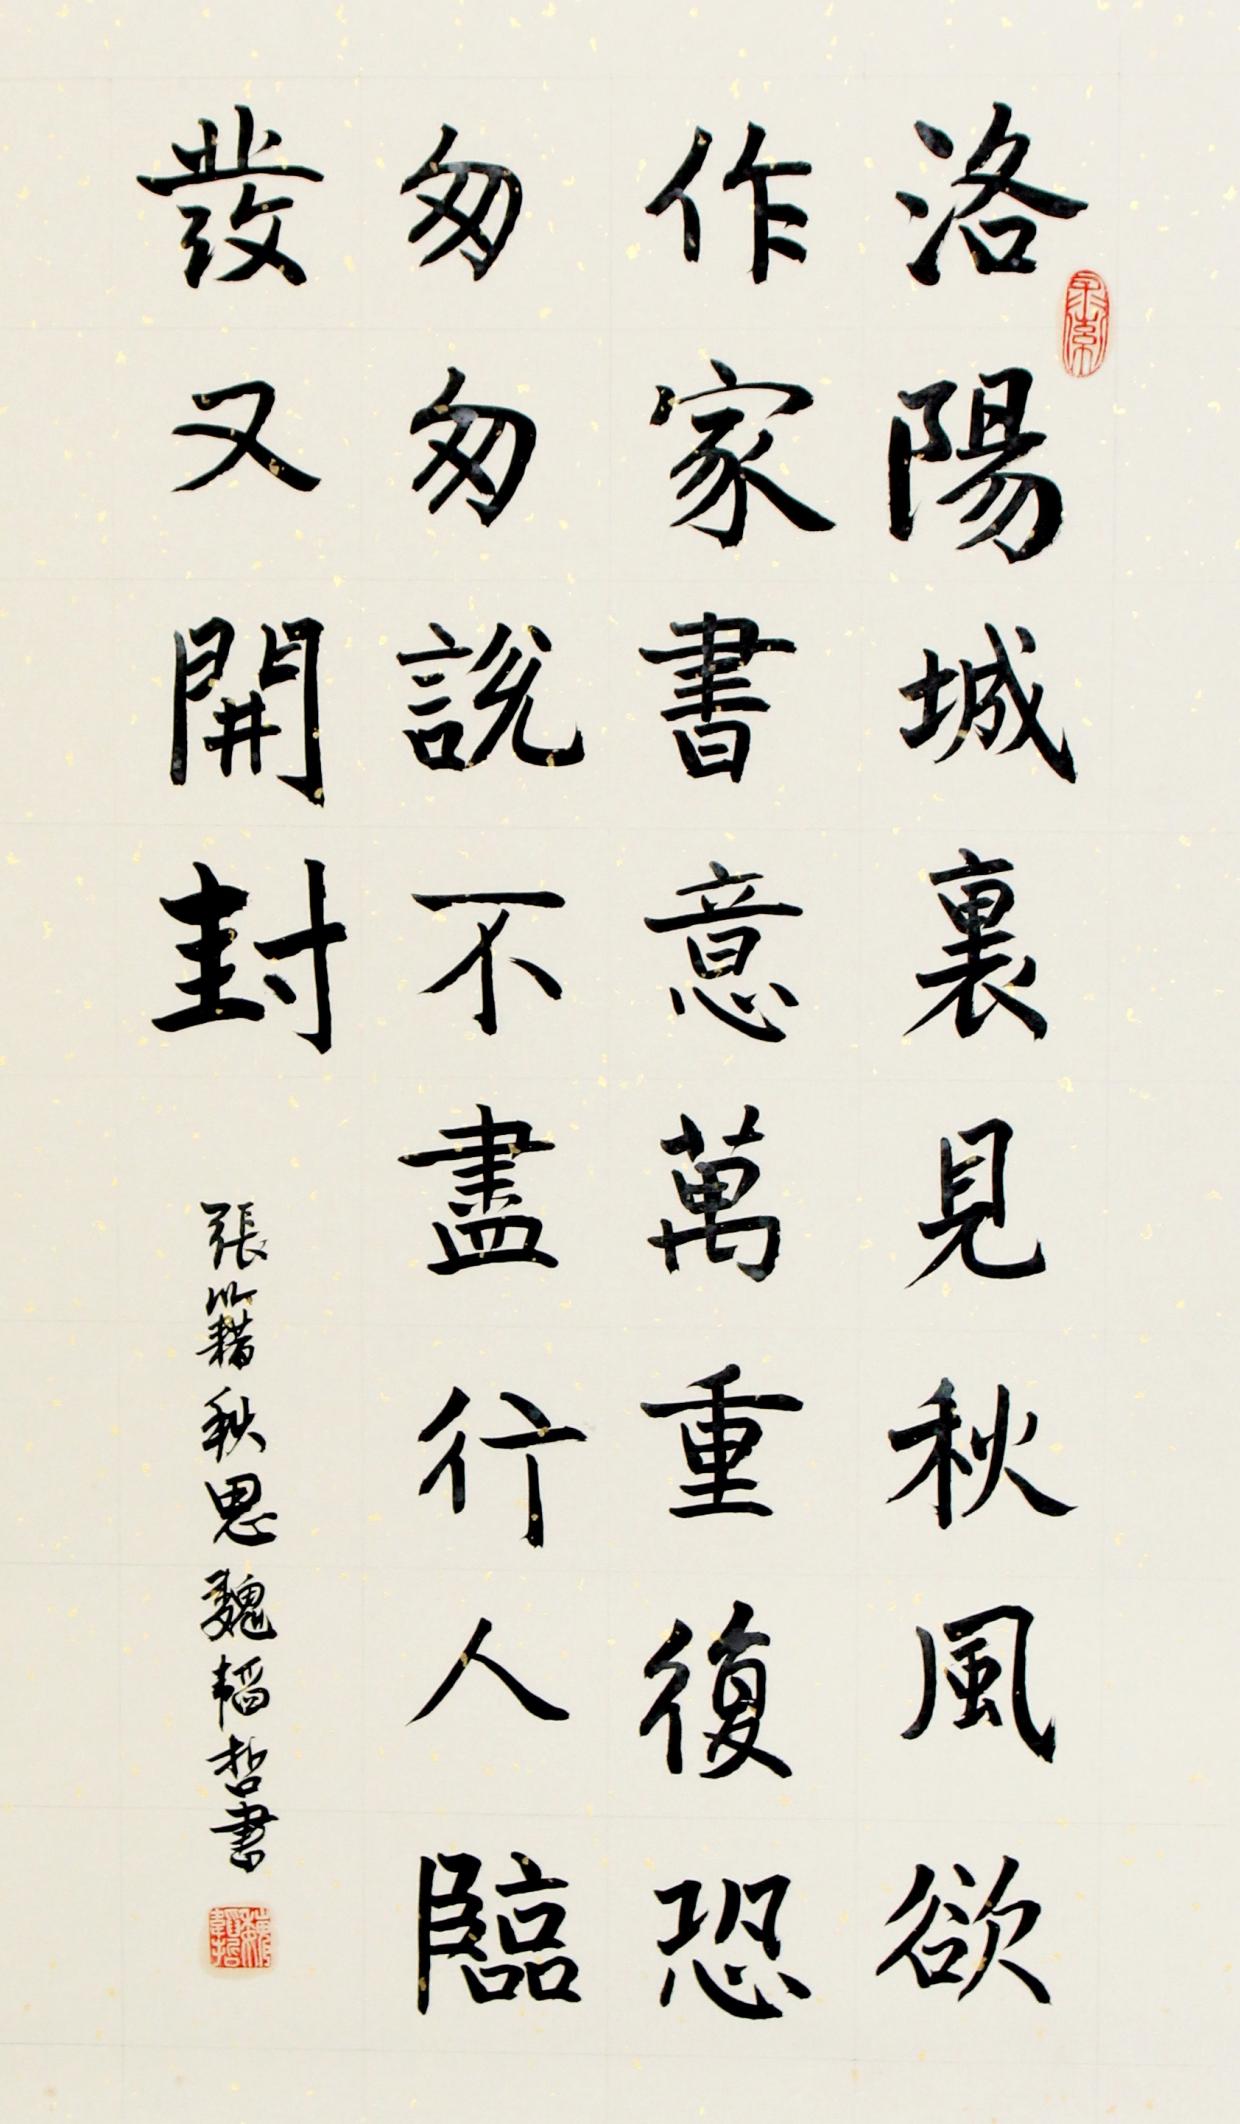 洛陽城裏見秋風欲
作家書意萬重復恐
匆匆說不盡行人臨
發又開封
張籍秋思魏韜哲書